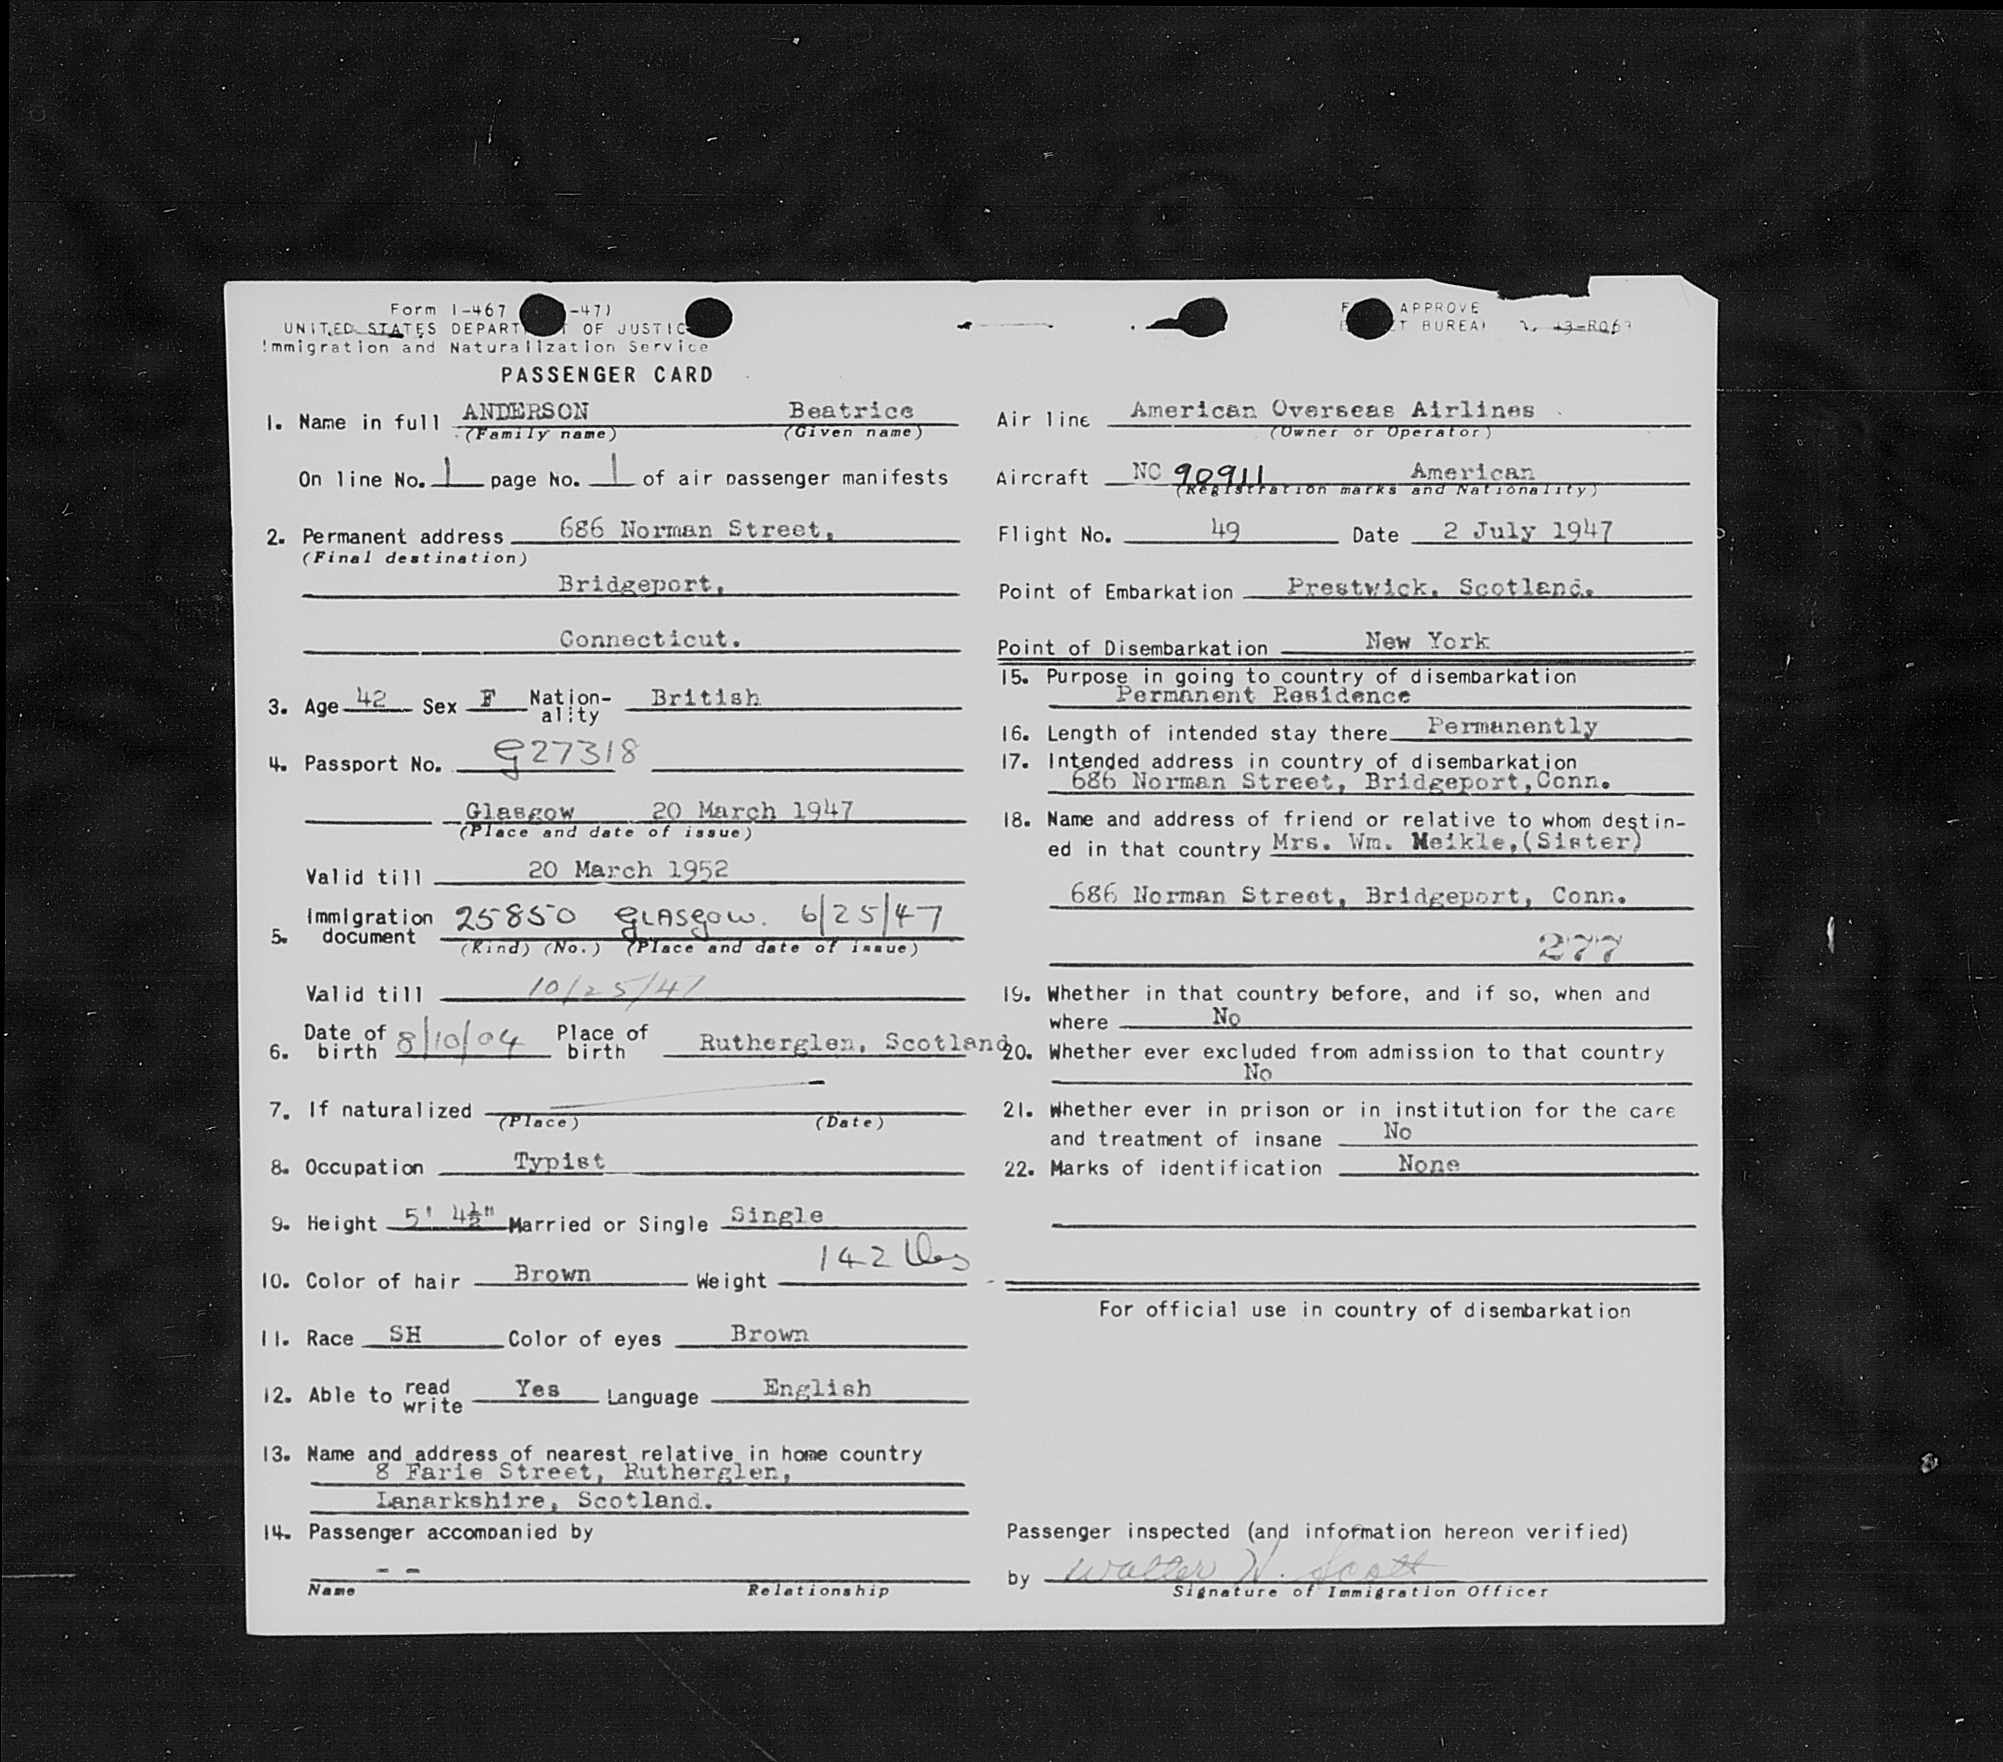 Form I-467 -47)
UNITED STATES DEPART OF JUSTIC
Immigration and Naturalization Service
PASSENGER CARD
APPROVE
BUREAU
1. Name in full ANDERSON Beatrice
(Family name) (Given name)
On line No. 1 page No. 1 of air passenger manifests
2. Permanent address 686 Norman Street,
(Final destination)
Bridgeport,
Connecticut.
3. Age 42 Sex F Nation-ality British
4. Passport No. G27318
Glasgow 20 March 1947
(Place and date of issue)
Valid till 20 March 1952
5. Immigration document 25850 Glasgow. 6/25/47
(Kind) (No.) (Place and date of issue)
Valid till 10/25/47
6. Date of birth 8/10/04 Place of birth Rutherglen, Scotland
7. If naturalized
(Place) (Date)
8. Occupation Typist
9. Height 5' 4½" Married or Single Single
10. Color of hair Brown Weight 142 lbs
11. Race SH Color of eyes Brown
12. Able to read write Yes Language English
13. Name and address of nearest relative in home country
8 Farie Street, Rutherglen,
Lanarkshire, Scotland.
14. Passenger accompanied by
- -
Name Relationship
Air line American Overseas Airlines
(Owner or Operator)
Aircraft NC 90911 American
(Registration marks and Nationality)
Flight No. 49 Date 2 July 1947
Point of Embarkation Prestwick, Scotland.
Point of Disembarkation New York
15. Purpose in going to country of disembarkation
Permanent Residence
16. Length of intended stay there Permanently
17. Intended address in country of disembarkation
686 Norman Street, Bridgeport,Conn.
18. Name and address of friend or relative to whom destin-
ed in that country Mrs. Wm. Meikle,(Sister)
686 Norman Street, Bridgeport, Conn.
277
19. Whether in that country before, and if so, when and
where No
20. Whether ever excluded from admission to that country
No
21. Whether ever in prison or in institution for the care
and treatment of insane No
22. Marks of identification None
For official use in country of disembarkation
Passenger inspected (and information hereon verified)
by Walter W. Scott
Signature of Immigration Officer